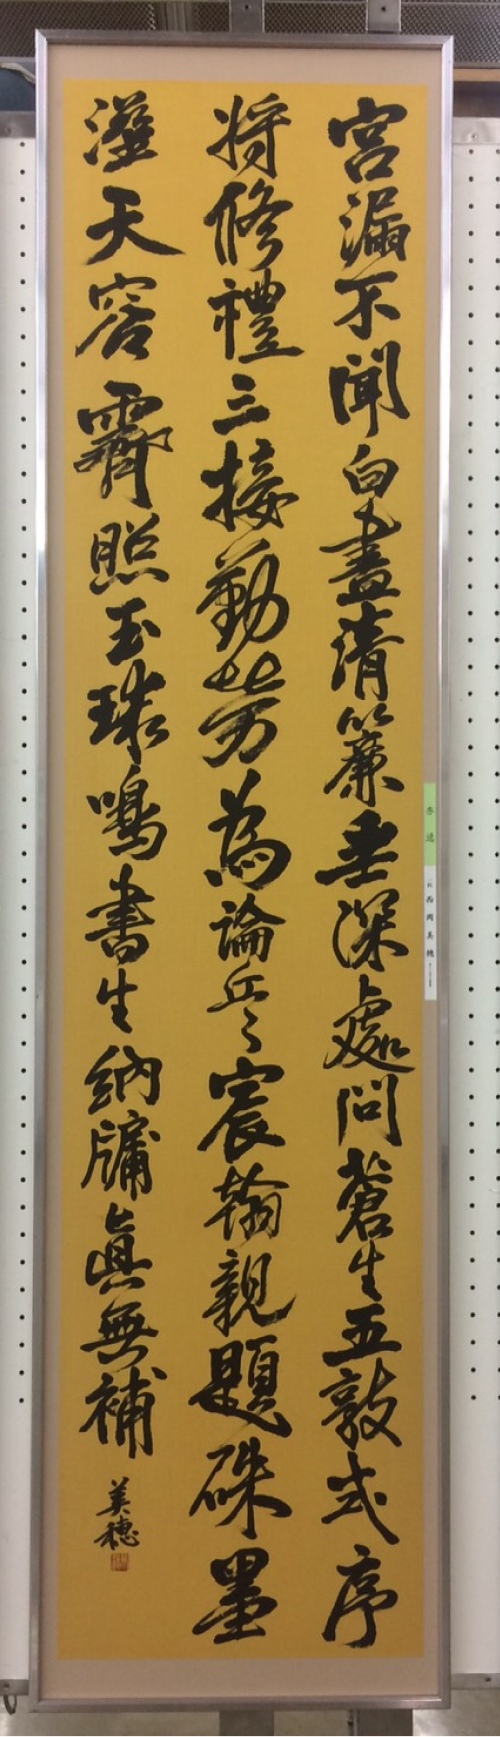 宮漏不聞白晝清簾垂深處問蒼生五敦式序
將修禮三接勤勞為論兵宸翰親題硃墨
溼天容霽照玉球鳴書生納牖眞無補
美穂
秀逸
西岡美穂